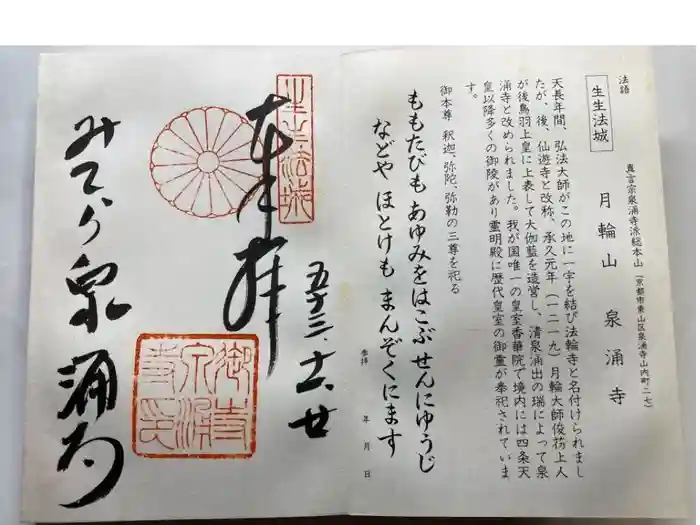 法語
生生法城
真言宗泉涌寺派総本山 (京都市東山区泉涌寺山内町二七)
月輪山 泉涌寺
天長年間、弘法大師がこの地に一宇を結び法輪寺と名付けられまし
たが、後、仙遊寺と改称、承久元年(一二一九)月輪大師俊芿上人
が後鳥羽上皇に上表して大伽藍を造営し、清泉涌出の瑞によって泉
涌寺と改められました。我が国唯一の皇室香華院で境内には四条天
皇以降多くの御陵があり霊明殿に歴代皇室の御霊が奉祀されていま
す。
御本尊 釈迦、弥陀、弥勒の三尊を祀る
ももたびも あゆみをはこぶ せんにゆうじ
などや ほとけも まんぞくにます
参拝 年 月 日
生生法城
奉拝
みてら泉涌寺
御寺
泉涌
寺印